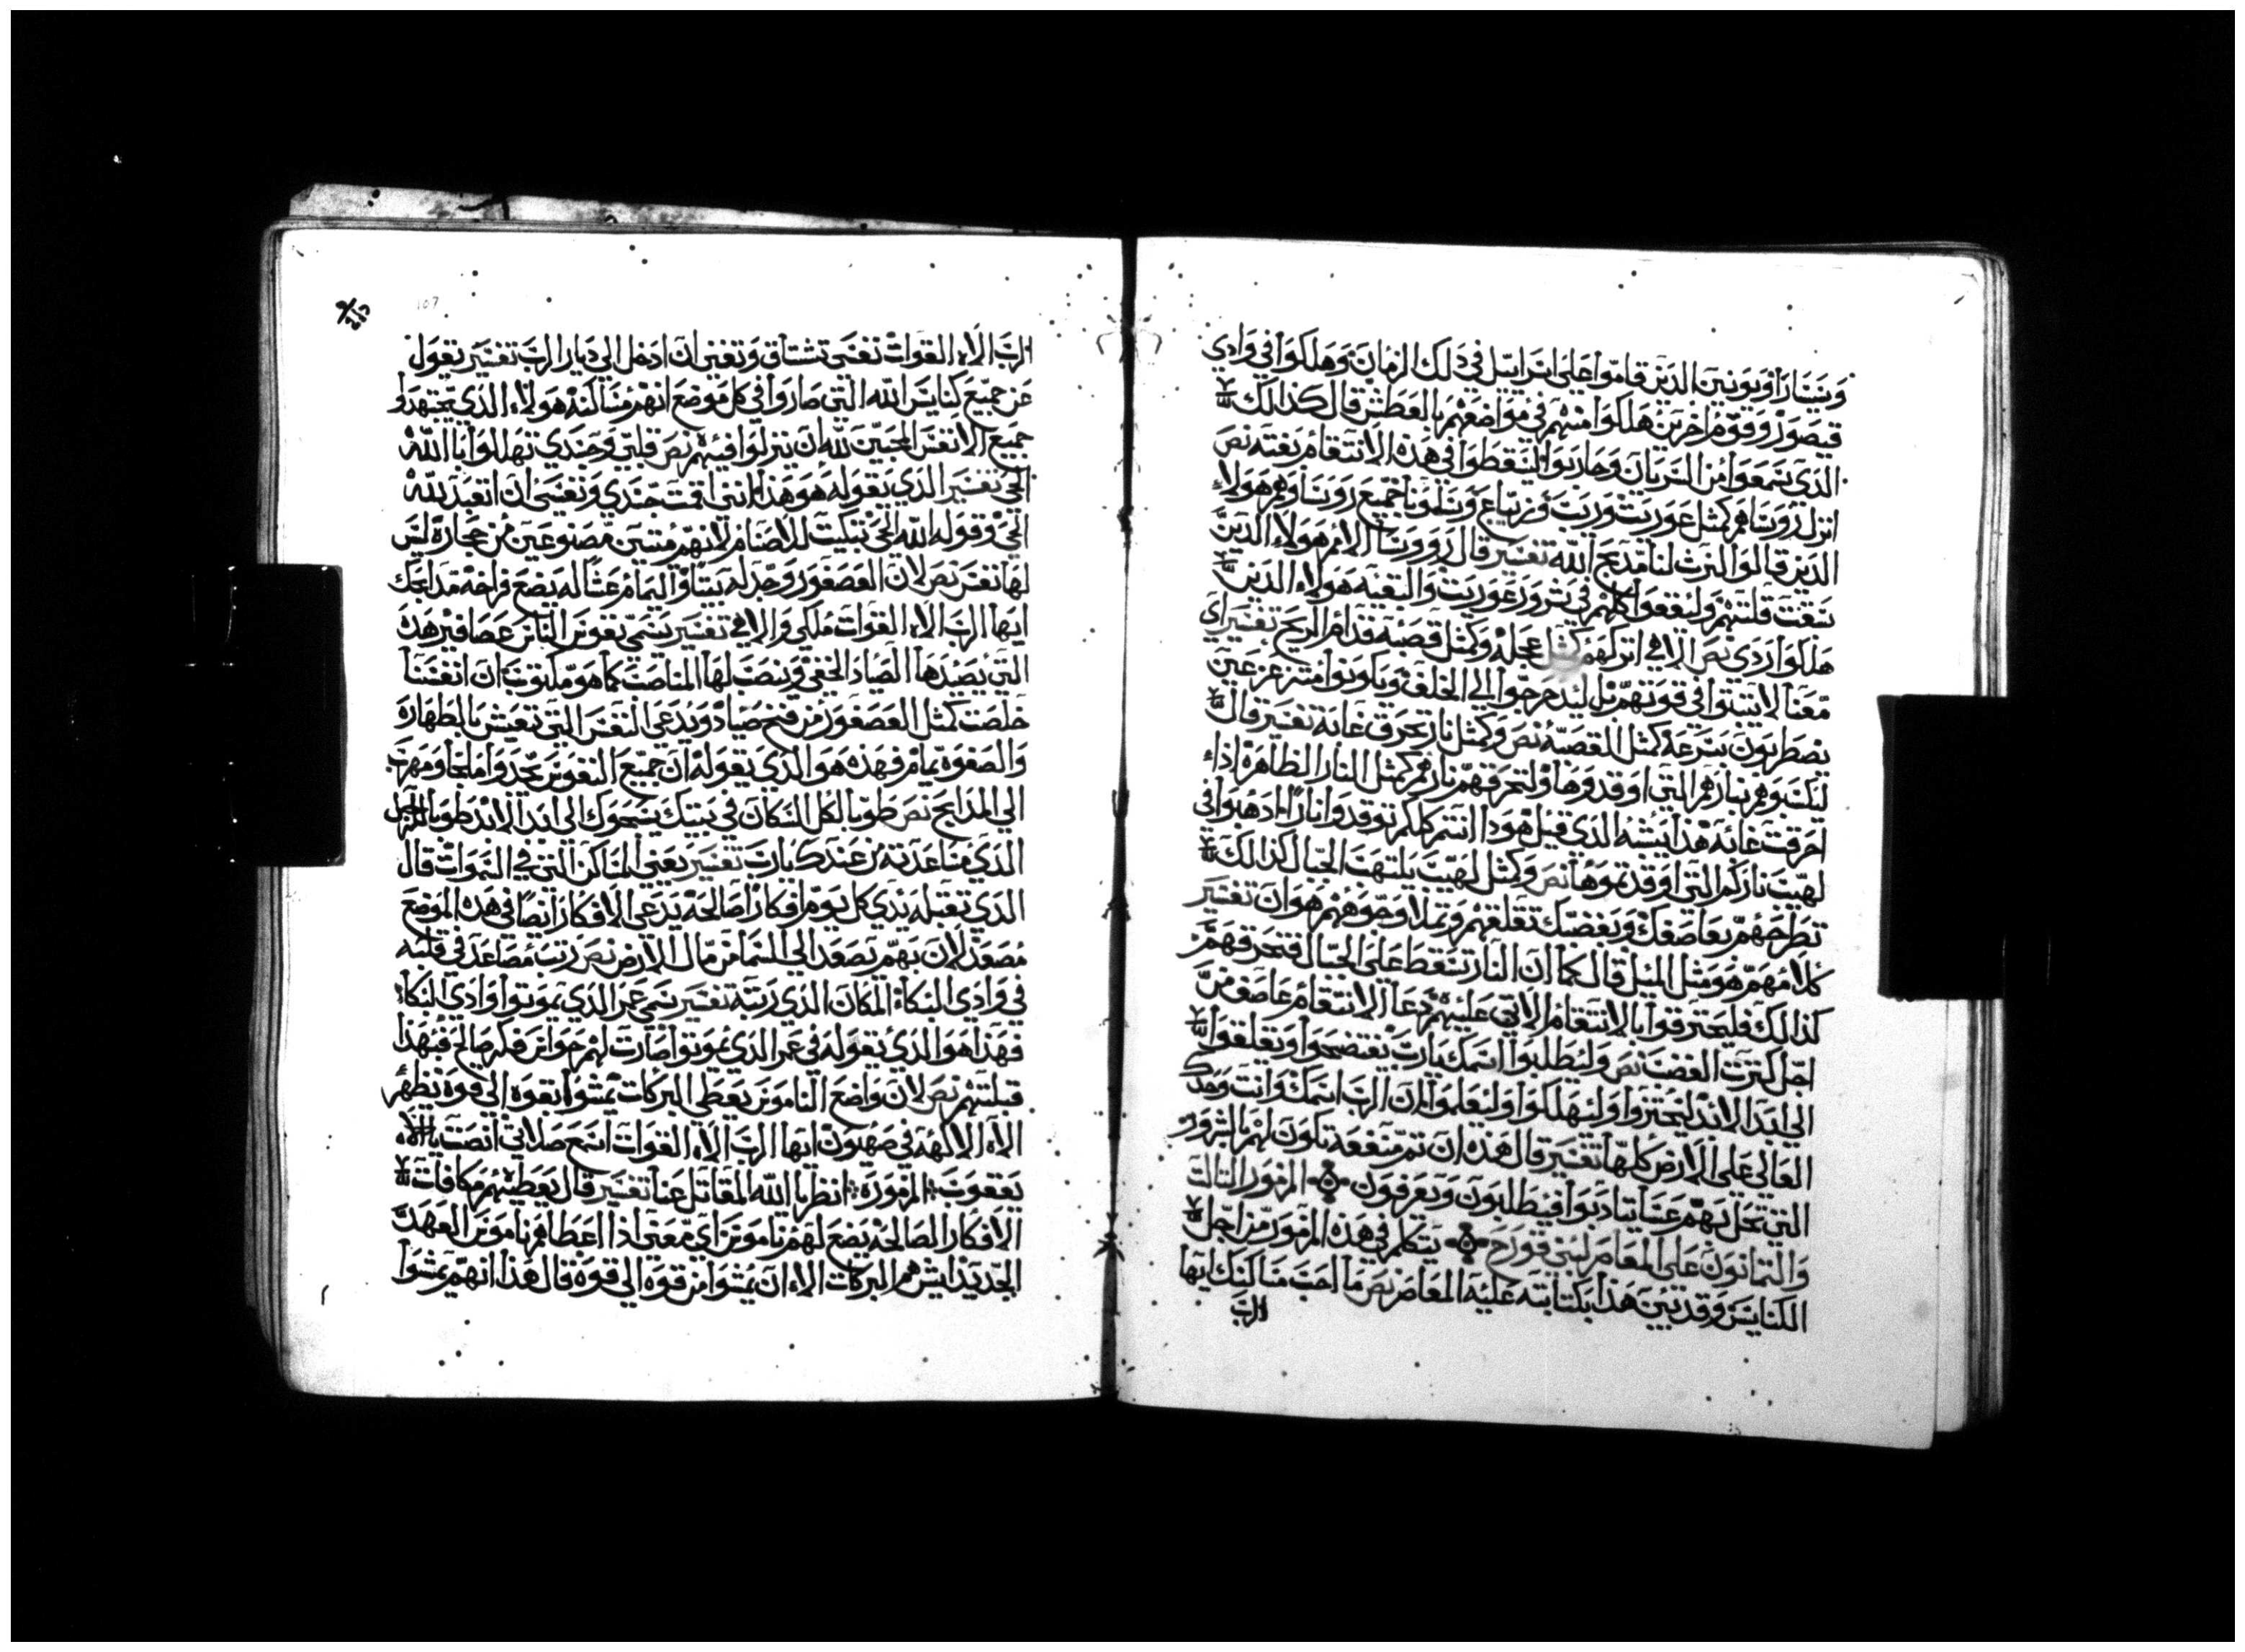 وسيسارا ويونيين الدين قاموا على اسراييل في دلك الزمان وهلكوا في وادي
قيصون وقوم اخرين هلكوا منهم في مواضعهم بالعطش قال كذالك
الدي سمعوا من السريان وحاربوا ليسقطوا في هذه الانتقام بغته نص
انزل روساهم كمثل عوريت وزيت وزيباع وسلمونا جميع روسا وهم هولاء
الدين قالوا لنرث لنا مدبح الله تفسير قال روورسا الامم هولاء الدين
سبقت قلتهم وليقعوا كلهم في شرور عوريت والبقيه هولاء الدين
هلكوا ردي نص الاهي اتركهم كمثل عجله وكمثل قصبه قدام الريح تفسير اي
معنا لا يتبتوا في قوتهم بل ليندحرجوا الي الخلف ويكونوا مسرعزعين
يضطربون بسرعة كمثل القصبه نص وكمثل نار تحرق غابة تفسير قال
ليلتبوهم بنارهم التي اوقدوها ولتحرقهم نارهم كمثل النار الظاهرة اذا
احرقت غابه هذا يشبه الدي قيل هودا انتم كلكم توقدوا نارا ادهبوا في
لهيب ناركم التي اوقدتموها نص وكمثل لهيب يلتهب الجبال كذالك
تطرحهم بعاصفك وبغضبك تقلقهم وتملا وجوههم هوان تفسير
كلامهم هو مثل المثل قال كما ان النار تسقط على الجبال فتحرقهم
كذالك فليحترقوا بالانتقام الاتي عليهم دعا الانتقام عاصف من
اجل كترت الغضب نص وليطلبوا اسمك يارب يفتضحوا ويقلقوا
الى ابد الابد ليخزوا وليهلكوا وليعلموا ان الرب اسمك وانت وحدك
العالي على الارض كلها تفسير قال هذه ان تم منفعة تكون لهم بالشرور
التي تحل بهم عسا يتادبوا فيطلبون ويعرفون المزمور التالت
والتمانون على المعاصر لبني قورح يتكلم في هذه المزمور من اجل
الكنايس وقد تبين هذا بكتابته عليه المعاصر نص ما احب مساكنك ايها
الرب
107
الرب الاه القوات نفسي تشتاق وتفنى ان ادخل الي ديار الرب تفسير يقول
عن جميع كنايس الله التي صاروا في كل موضع انهم مساكنه هولاء الدي يجتهدوا
جميع الانفس المحبين لله ان ينزلوا فيهم نص قلبي وجسدي تهللوا بالله
الحي تفسير الدي يقوله هو هذا انني اقمت جسدي ونفسي ان اتعبد لله
الحي وقوله الله الحي تبكيت للاصنام لانهم ميتين مصنوعين من حجارة ليس
لها نفس نص لان العصفور وجد له بيتا واليمام عشا له يضع فراخه مدابحك
ايها الرب الاه القوات ملكي والاهي تفسير يسمي نفوس الناس عصافير هذه
التي يصيدها الصياد الخفي وينصب لها المناصب كما هو مكتوب ان انفسنا
خلصت كمثل العصفور من فخ صياد ويدعى النفس التي تعيش بالطهارة
والصفوة يمام فهذه هو الدي يقوله ان جميع النفوس يجدوا ملجا ومهرب
الي المدابح نص طوبا لكل السكان في بيتك يسبحوك الى ابد الابد طوبا للرجل
الدي مساعدته من عندك يارب تفسير يعني المساكن التي في السموات قال
الدي تقبله يدي كل يوم افكار اصالحة يدعي الافكار ايضا في هذه الموضع
مصعد لان بهم يصعد الى السما من مال الارض نص رتب مصاعد في قلبه
في وادي البكا المكان الدي رتبه تفسير سمي عمر الدي يموتوا وادي البكاء
فهذا هو الدي يقوله في عمر الدي يموتوا صارت لهم حواس فكر صالح فبهذا
قبلتهم نص لان واضع الناموس يعطي البركات يمشوا بقوة الي قوة نظهر
الاه الالهه في صهيون ايها الرب الاه القوات اسمع صلاتي انصت يا الاه
يعقوب المزمورة انظر يا الله المقاتل عنا تفسير قال يعطيهم مكافات
الافكار الصالحه يضع لهم ناموس اي معني اذا اعطاهم ناموس العهد
الجديد ايش هم البركات الاء ان يمشوا من قوه الي قوة قال هذا انهم يمشوا